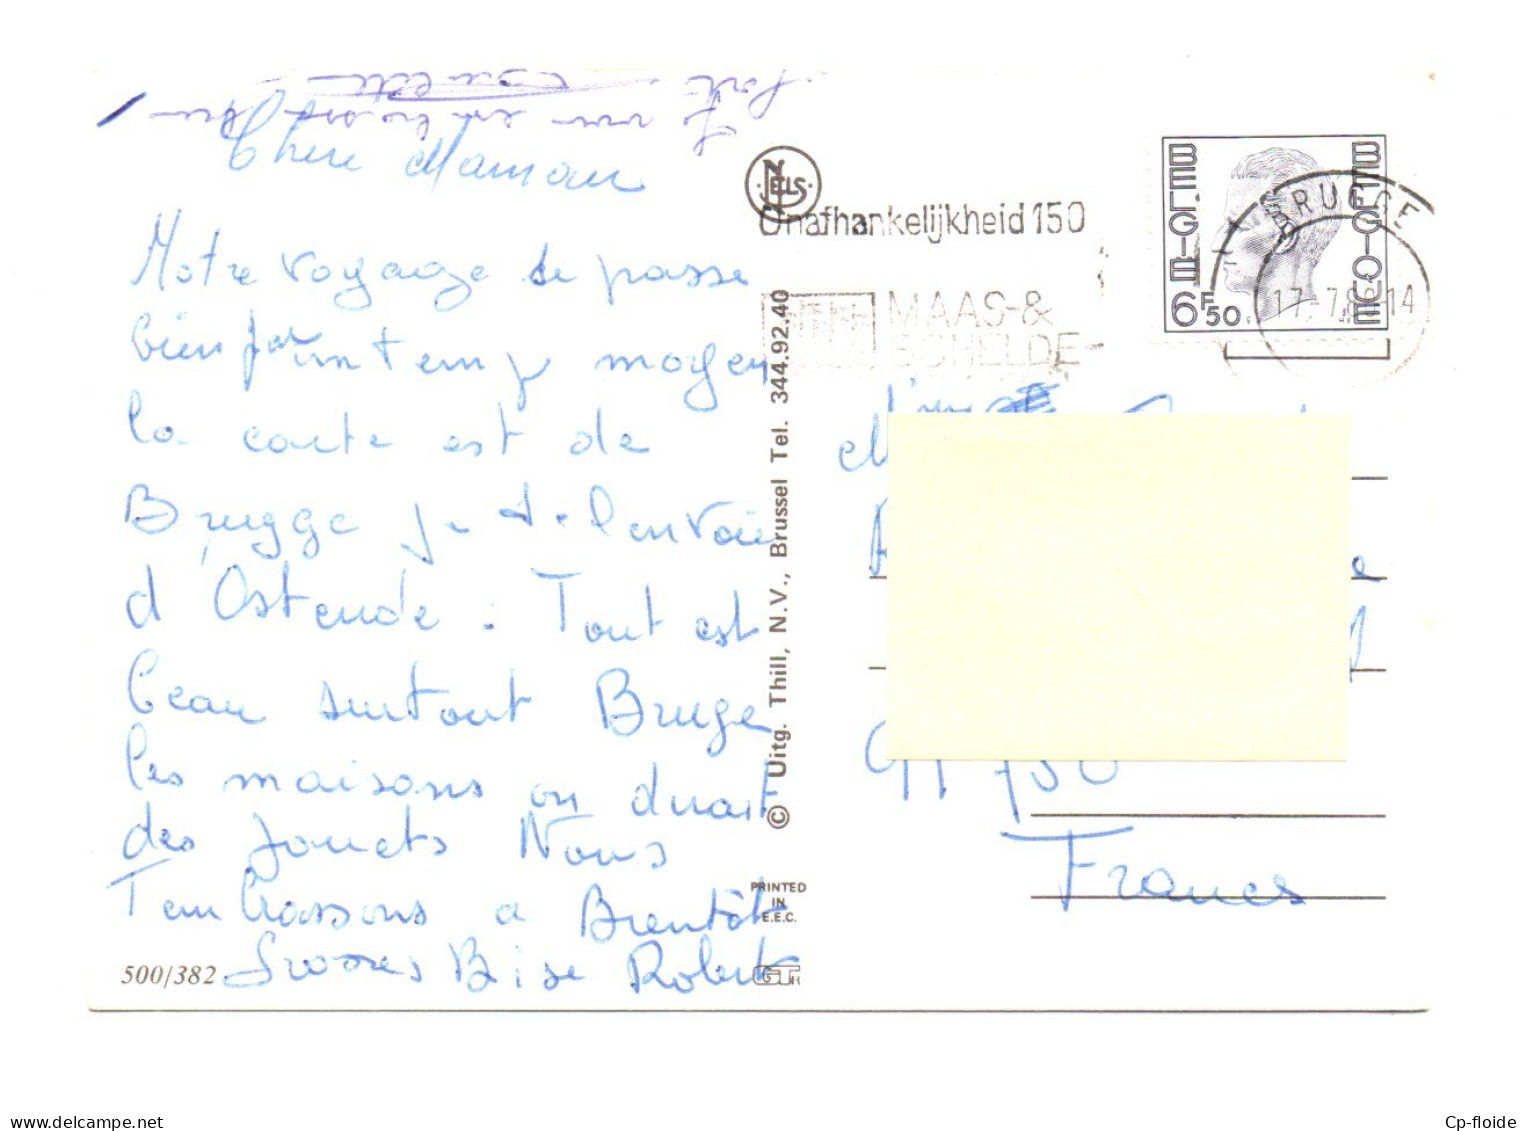 Chère Maman
Notre voyage se passe
bien par un temp moyen
la carte est de
Brugge je te l envoie
d Ostende. Tout est
beau surtout Bruge
les maisons on dirait
des jouets Nous
T embrassons a Bientôt
Grosses Bise Robert
Je vous embrasse bien
fort
500/382
NELS
Onafhankelijkheid 150
MAAS-&
SCHELDE
BELGIE
BELGIQUE
6F50
BRUGGE
17-7 14
© Uitg. Thill, N.V., Brussel Tel. 344.92.40
PRINTED
IN
E.E.C.
France
delcampe.net
Cp-floide